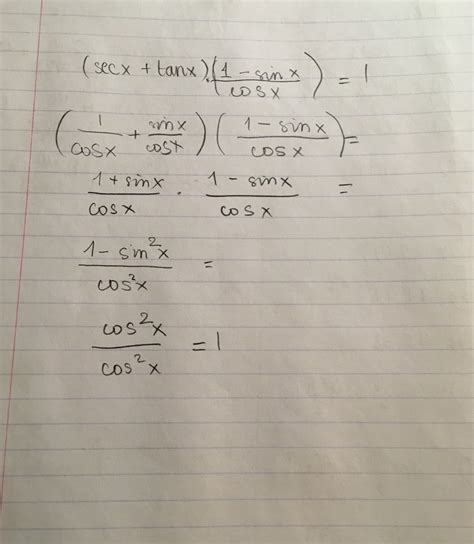 (secx + tanx).(1 - sinx / cosx) = 1
(1 / cosx + sinx / cosx)(1 - sinx / cosx) =
1 + sinx / cosx . 1 - sinx / cosx =
1 - sin²x / cos²x =
cos²x / cos²x = 1